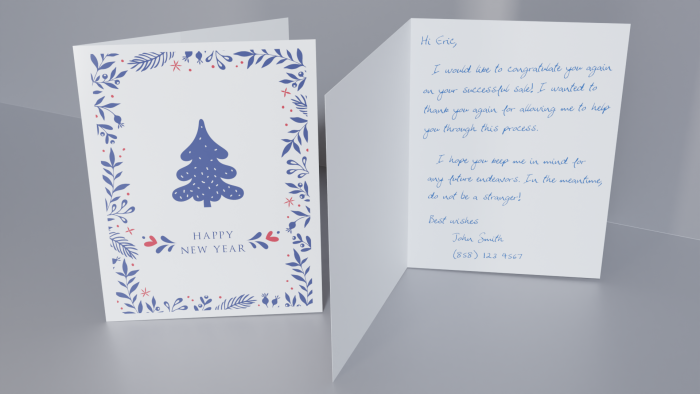 HAPPY
NEW YEAR
Hi Eric,
I would like to congratulate you again
on your successful sale! I wanted to
thank you again for allowing me to help
you through this process.
I hope you keep me in mind for
any future endeavors. In the meantime,
do not be a stranger!
Best wishes
John Smith
(858) 122 4567